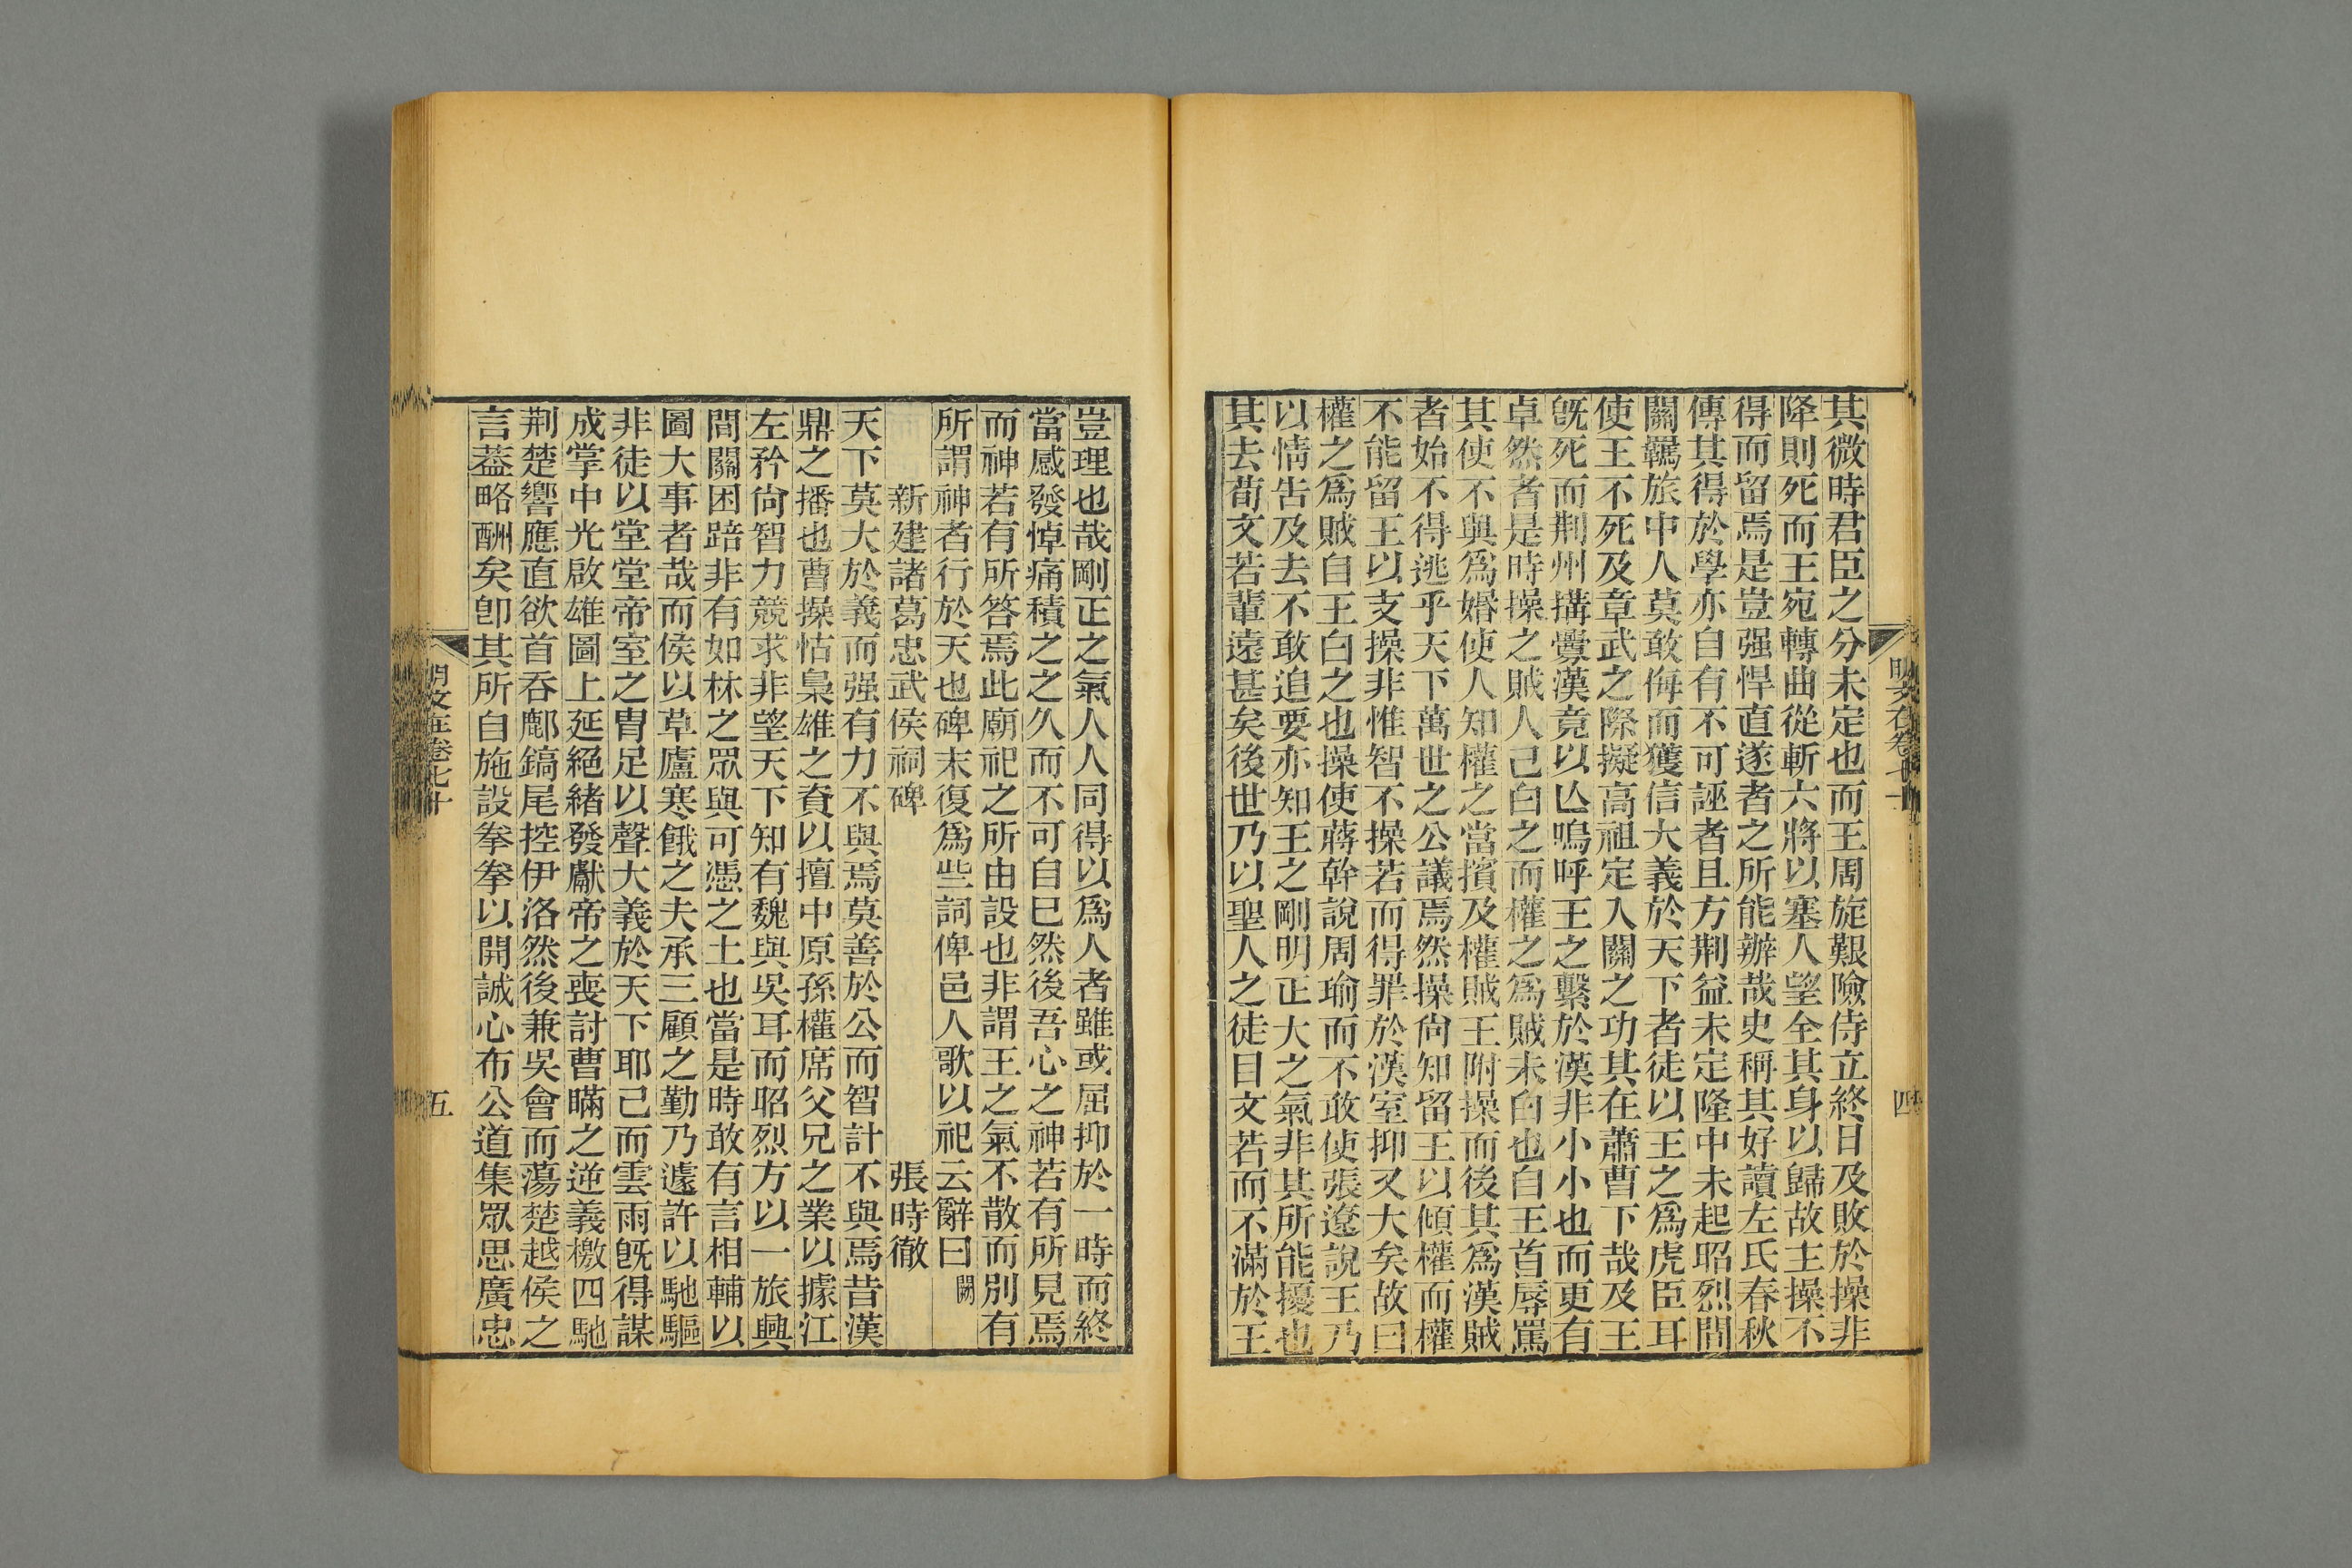 其微時君臣之分未定也而王周旋艱險侍立終日及敗於操非
降則死而王宛轉曲從斬六將以塞人望全其身以歸故主操不
得而留焉是豈强悍直遂者之所能辦哉史稱其好讀左氏春秋
傳其得於學亦自有不可誣者且方荆益未定隆中未起昭烈間
關羈旅中人莫敢侮而獲信大義於天下者徒以王之爲虎臣耳
使王不死及章武之際擬高祖定入關之功其在蕭曹下哉及王
旣死而荆州搆釁漢竟以亾嗚呼王之繫於漢非小小也而更有
卓然者是時操之賊人已白之而權之爲賊未白也自王首辱罵
其使不與爲婚使人知權之當擯及權賊王附操而後其爲漢賊
者始不得逃乎天下萬世之公議焉然操尙知留王以傾權而權
不能留王以支操非惟智不操若而得罪於漢室抑又大矣故曰
權之爲賊自王白之也操使蔣幹說周瑜而不敢使張遼說王乃
以情告及去不敢迫要亦知王之剛明正大之氣非其所能擾也
其去荀文若輩遠甚矣後世乃以聖人之徒目文若而不滿於王
明文在卷七十
四
豈理也哉剛正之氣人人同得以爲人者雖或屈抑於一時而終
當感發悼痛積之之久而不可自已然後吾心之神若有所見焉
而神若有所答焉此廟祀之所由設也非謂王之氣不散而別有
所謂神者行於天也碑末復爲些詞俾邑人歌以祀云辭曰闕
新建諸葛忠武侯祠碑 張時徹
天下莫大於義而强有力不與焉莫善於公而智計不與焉昔漢
鼎之播也曹操怙梟雄之資以擅中原孫權席父兄之業以據江
左矜尙智力競求非望天下知有魏與吳耳而昭烈方以一旅興
間關困踣非有如林之眾與可憑之土也當是時敢有言相輔以
圖大事者哉而侯以草廬寒餓之夫承三顧之勤乃遽許以馳驅
非徒以堂堂帝室之冑足以聲大義於天下耶已而雲雨旣得謀
成掌中光啟雄圖上延絕緒發獻帝之喪討曹瞞之逆義檄四馳
荆楚響應直欲首吞鄜鎬尾控伊洛然後兼吳會而蕩楚越侯之
言葢略酬矣卽其所自施設拳拳以開誠心布公道集眾思廣忠
明文在卷七十
五